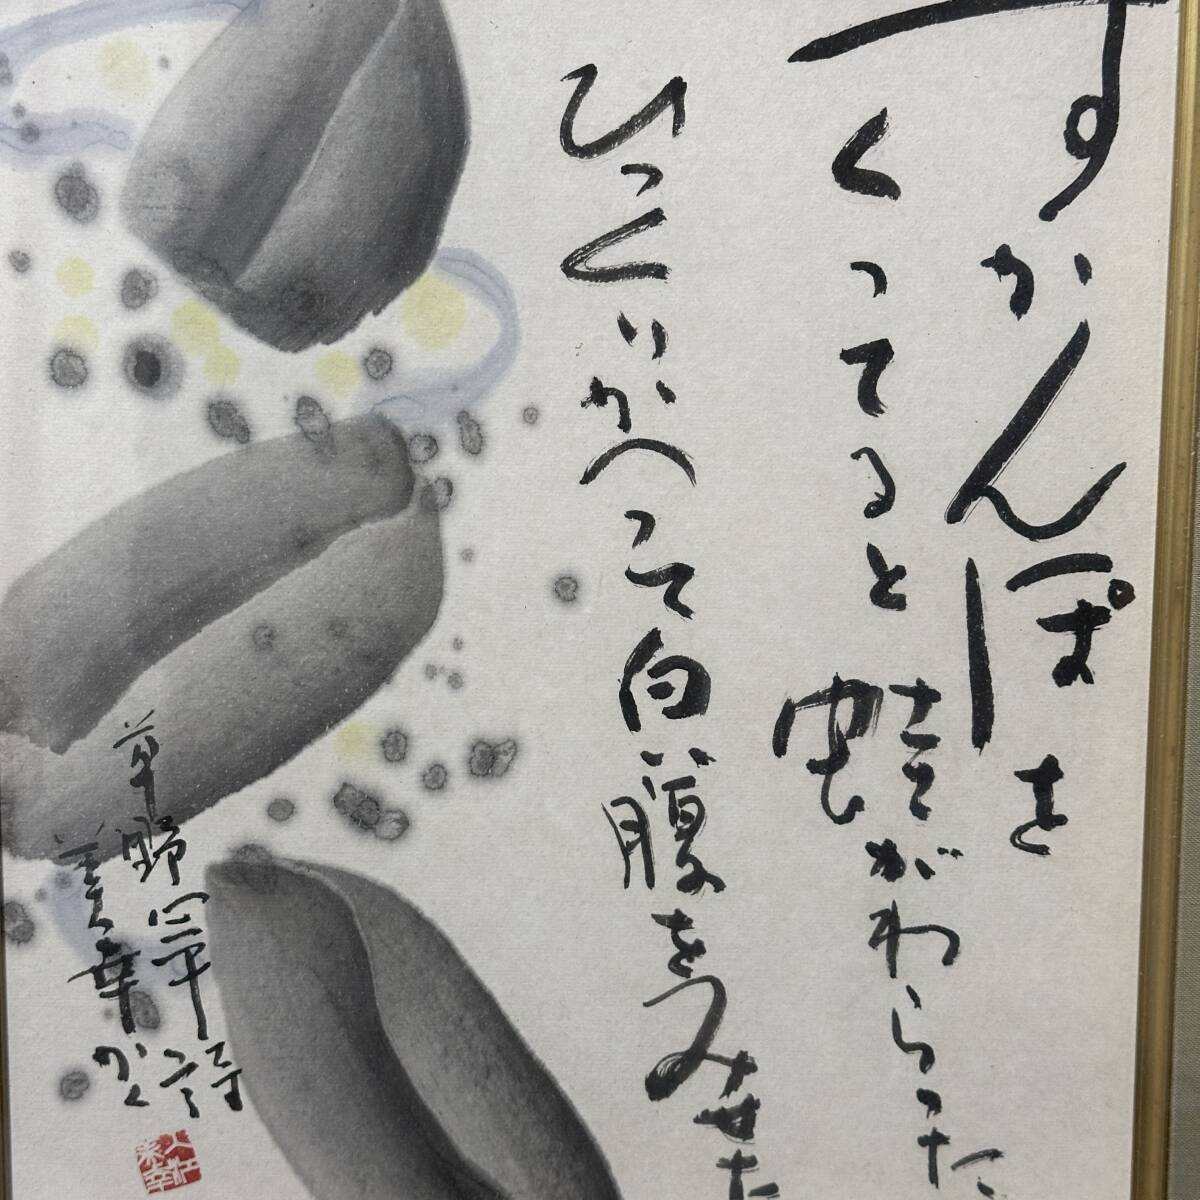 すかんぽを
くってると蛙がわらった
ひっくりかへって白い腹をみせた
草野心平詩
美幸かく